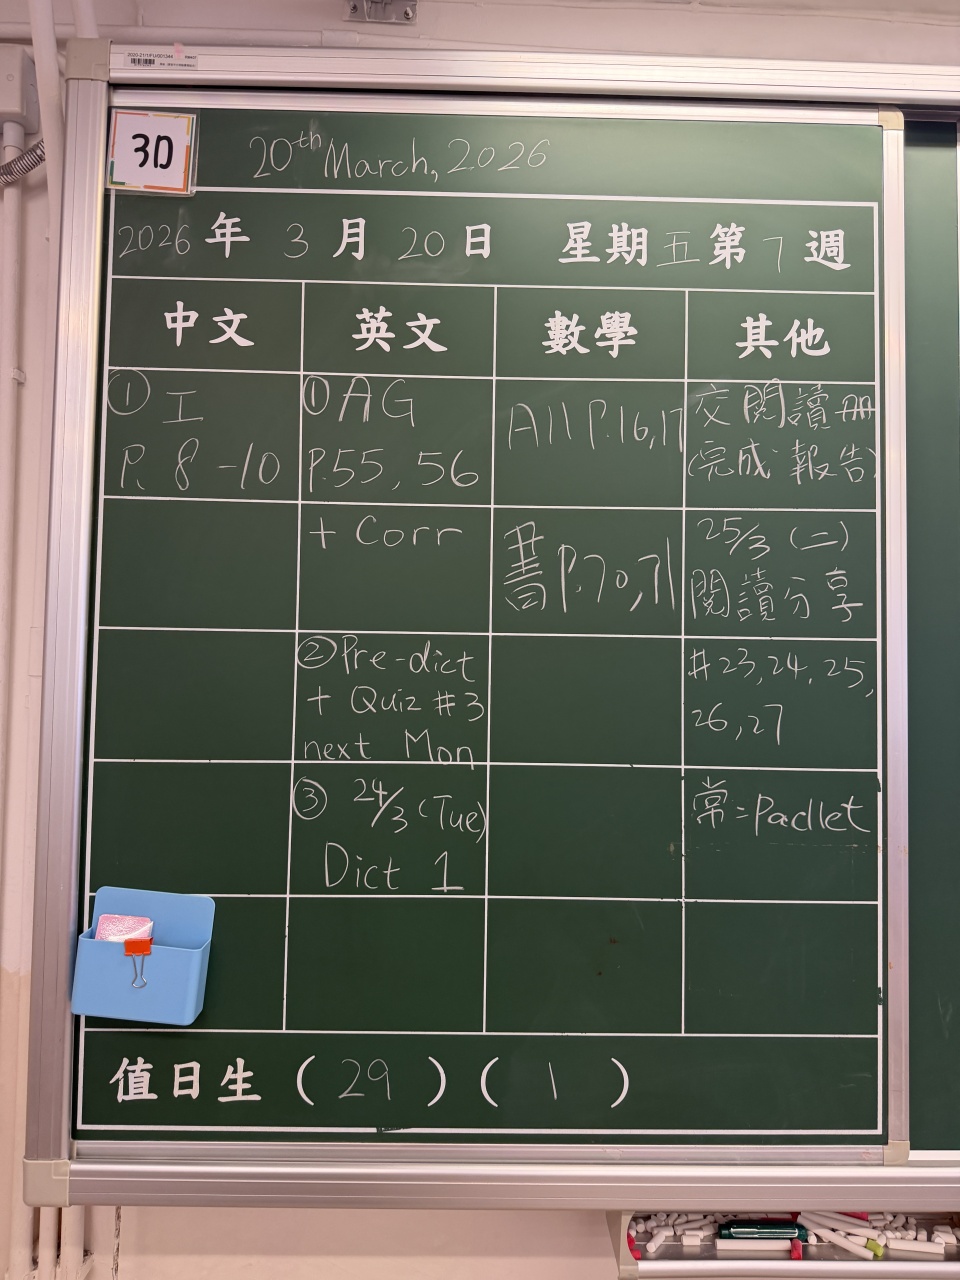 3D
20th March, 2026
2026年3月20日 星期五第7週
中文
英文
數學
其他
① 工
P. 8-10
① AG
P.55, 56
+ Corr
② Pre-dict
+ Quiz #3
next Mon
③ 24/3 (Tue)
Dict 1
All P.16,17
書P.70,71
交閱讀冊
(完成報告)
25/3 (二)
閱讀分享
#23,24,25,
26,27
常=Padlet
值日生(29)(1)